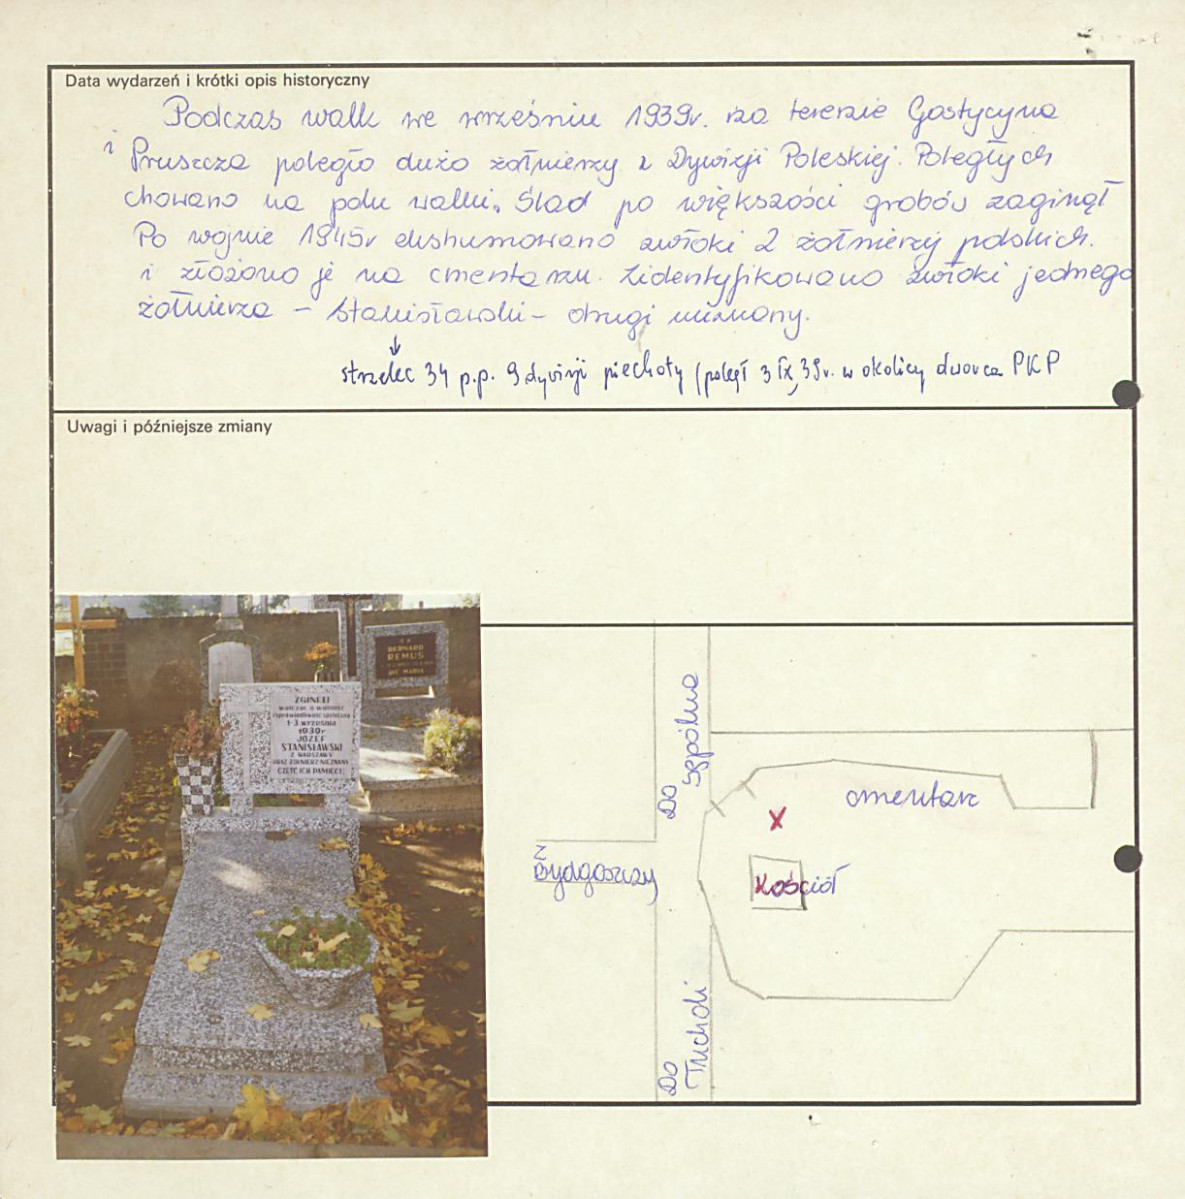 Data wydarzeń i krótki opis historyczny
Podczas walk we wrześniu 1939r. na terenie Gostycyna
i Pruszcza poległo dużo żołnierzy z Dywizji Poleskiej. Poległych
chowano na polu walki. Ślad po większości grobów zaginął
Po wojnie 1945r ekshumowano zwłoki 2 żołnierzy polskich.
i złożono je na cmentarzu. Zidentyfikowano zwłoki jednego
żołnierza – Stanisławski – drugi nieznany.
strzelec 34 p.p. 9 dywizji piechoty (poległ 3 IX, 39r. w okolicy dworca PKP
Uwagi i późniejsze zmiany
BERNARD
REMUS
ZGINĘLI
WALCZĄC O WOLNOŚĆ
I SPRAWIEDLIWOŚĆ SPOŁECZNĄ
1-3 września
1939r
JÓZEF
STANISŁAWSKI
Z WARSZAWY
ORAZ ŻOŁNIERZ NIEZNANY
CZEŚĆ ICH PAMIĘCI
Do
Sępólna
cmentarz
X
Z
Bydgoszczy
Kościół
Do
Tucholi